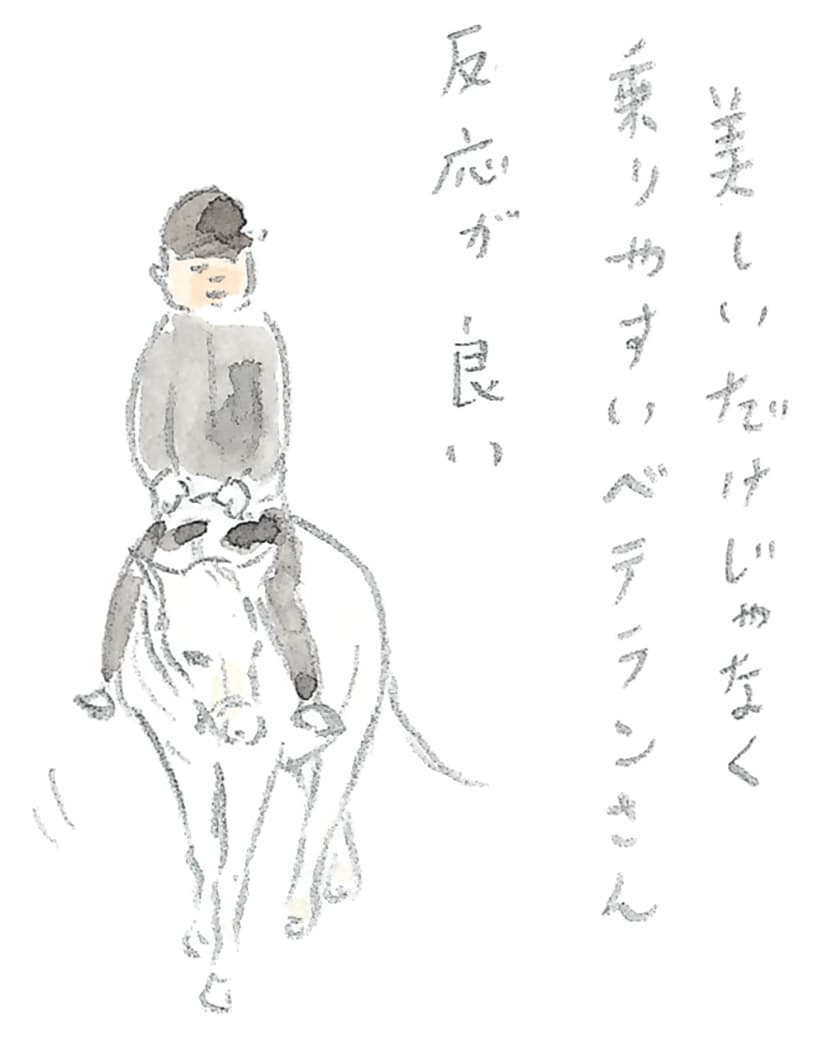 美しいだけじゃなく
乗りやすいベテランさん
反応が良い